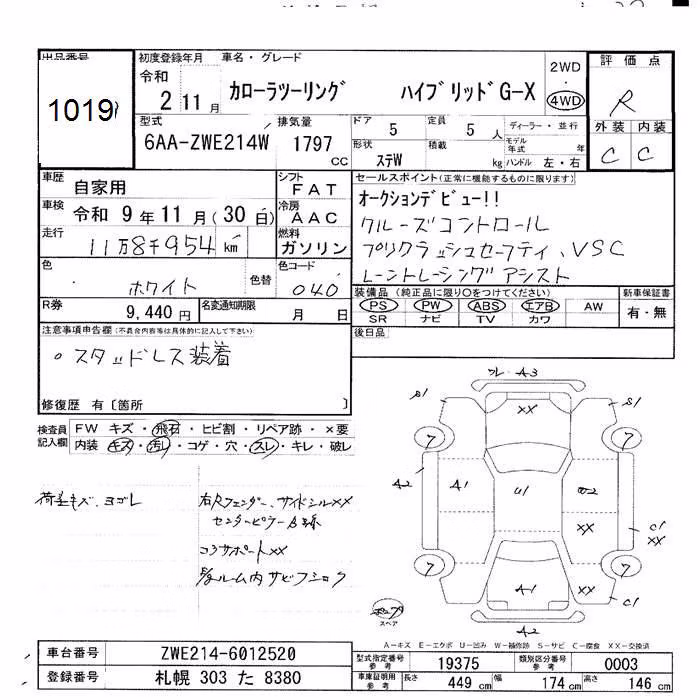 出品番号
1019
初度登録年月
令和
2 11 月
車名・グレード
カローラツーリング ハイブリッドG-X
2WD
・
4WD
評価点
R
外装 内装
C C
型式
6AA-ZWE214W
排気量
1797
CC
ドア
5
定員
5 人
形状
ステW
積載
kg
ディーラー・並行
モデル年式 年
ハンドル 左・右
車歴
自家用
車検
令和 9 年 11 月(30 日)
走行
11万8千954 km
色
ホワイト
色替
シフト
FAT
冷房
AAC
燃料
ガソリン
色コード
040
R券
9,440 円
名変通知期限
月 日
セールスポイント(正常に機能するものに限ります)
オークションデビュー!!
クルーズコントロール
プリクラッシュセーフティ、VSC
レーントレーシングアシスト
装備品(純正品に限り○をつけてください)
PS PW ABS エアB AW
SR ナビ TV カワ
新車保証書
有・無
後日品
注意事項申告欄(不具合内容等は具体的に記入して下さい)
。スタッドレス装着
修復歴 有〔箇所 〕
検査員記入欄
FW キズ・飛石・ヒビ割・リペア跡・×要
内装 キズ・汚レ・コゲ・穴・スレ・キレ・破レ
荷室キズ、ヨゴレ
右Rフェンダー、サイドシルXX
センターピラー
コアサポートXX
ルーム内サビフショク
A3
XX
S1
S1
7
7
A2
A1
U1
U2
XX
C1
XX
7
7
A1
XX
C1
A2
スペア
A-キズ E-エクボ U-凹み W-補修跡 S-サビ C-腐食 XX-交換済
車台番号
ZWE214-6012520
登録番号
札幌 303 た 8380
型式指定番号
参考
19375
類別区分番号
参考
0003
車庫証明用
参考
長さ
449 cm
幅
174 cm
高さ
146 cm